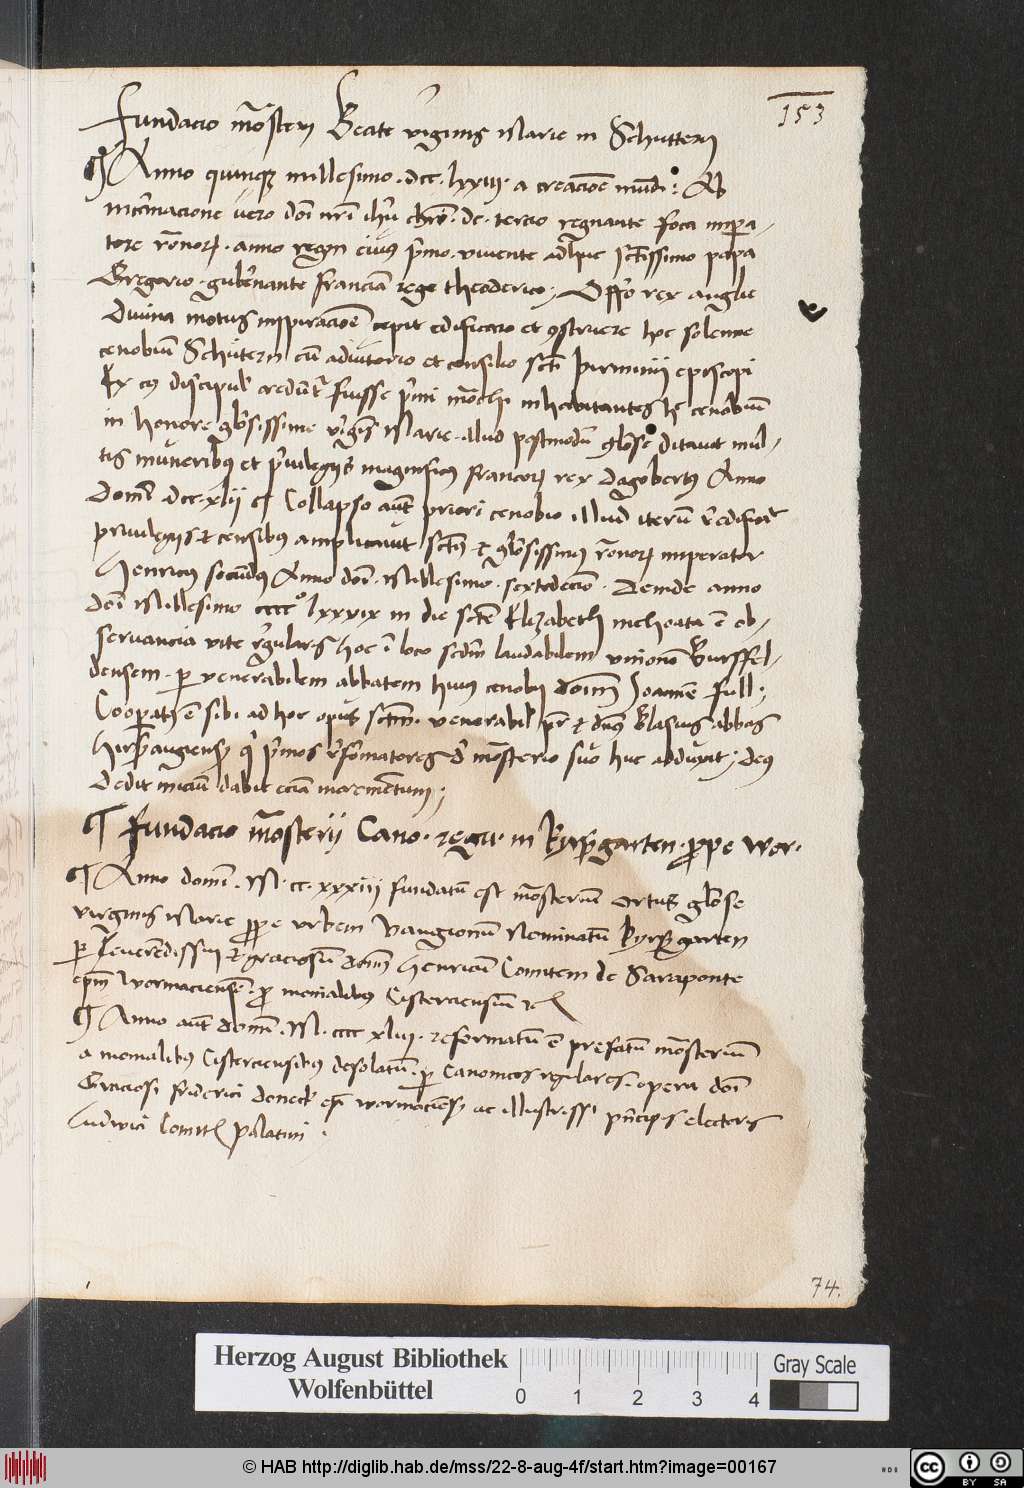 153
Fundacio mo͞sterij Beate v͛ginis Marie in Schuttern
¶ Anno quinq millesimo · dcc · lxxiij · a creacio͞e mu͞di : Ab
incarnacione vero do͞i nr͞i ih͞u chr͞i · dc · tercio regnante foca impa-
tore ro͞nor͞ · anno regni eius p͛mo · vivente adhuc sct͞issimo papa
Gregorio · gub͛nante francia͞ rege theoderico ; Offo rex anglie
Divina motus inspiracio͞e cepit edificare et ꝯstruere hoc solenne
cenobiu͞ Schuttern cu͞ adiutorio et consilio sct͞i Pirminij episcopi
Ex cuꝰ discipul͛ credu͞t͛ fuisse p͛mi mo͞chi inhabitantes h͛ cenobiu͞
in honore gl͛osissime v͛gi͞s Marie · illud postmodu͞ gl͛ose ditavit mul-
tis munerib͛ et p͛uilegijs magnificꝰ francor͞ rex dagobertꝰ Anno
Domi͞ · dcc · xlij ¶ Collapso aut͞ priori cenobio illud iteru͞ redificat͛
priuilegijs et censibꝰ amplicauit sct͞ꝰ et gl͛osissimꝰ ro͞nor͞ imperator
Henricꝰ secu͞dꝰ Anno do͞i · Millesimo · sextodecio͞ · Deinde anno
do͞i Millesimo cccc° lxxxix in die sct͞e Elizabeth inchoata e͞ ob-
servancia vite r͛gularis hoc i͞ loco sc͞dm laudabilem vnione͞ Burssfel-
densem · ꝑ venerabilem abbatem huiꝰ cenobij do͞im͞ Joanne͞ full ;
Cooperatꝰ e͞ sibi ad hoc opus sct͞m · venerabil͛ pr͞ et dn͞s Blasius abbas
Hirsaugiens͛ q͛ p͛mos r͛formatores d͛ mo͞sterio suo huc adduxit ; deus
dedit iniciu͞ dabit ecia͞ increme͞tum ;
¶ Fundacio mo͞sterij Cano · regu · in kyrsgarten · prope wor ·
¶ Anno domi͞ · M · cc · xxxiij fundatu͞ est mo͞steriu͞ ortus gl͛ose
virginis Marie prope vrbem Vangionu͞ Nominatu͞ kyrsgarten
ꝑ Reuere͞dissimu͞ et graciosu͞ domi͞m͞ Henricu͞ Comitem de Saraponte
ep͞m wormaciense͞ · pro monialibus Cisterciensiu͞ etc
¶ Anno aut͞ domi͞ · M · cccc xliij · reformatu͞ e͞ prefatu͞ mo͞steriu͞
a monialibꝰ Cisterciensibus desolatu͞ · ꝑ Canonicos regulares · opera do͞i
Graciosi friderici doneck ep͞i wormaciens͛ ac illustrissi͞ p͛ncipis electoris
Ludwici Comit͛ Palatini ·
74.
Herzog August Bibliothek
Wolfenbüttel
0 1 2 3 4
Gray Scale
© HAB http://diglib.hab.de/mss/22-8-aug-4f/start.htm?image=00167
cc BY SA